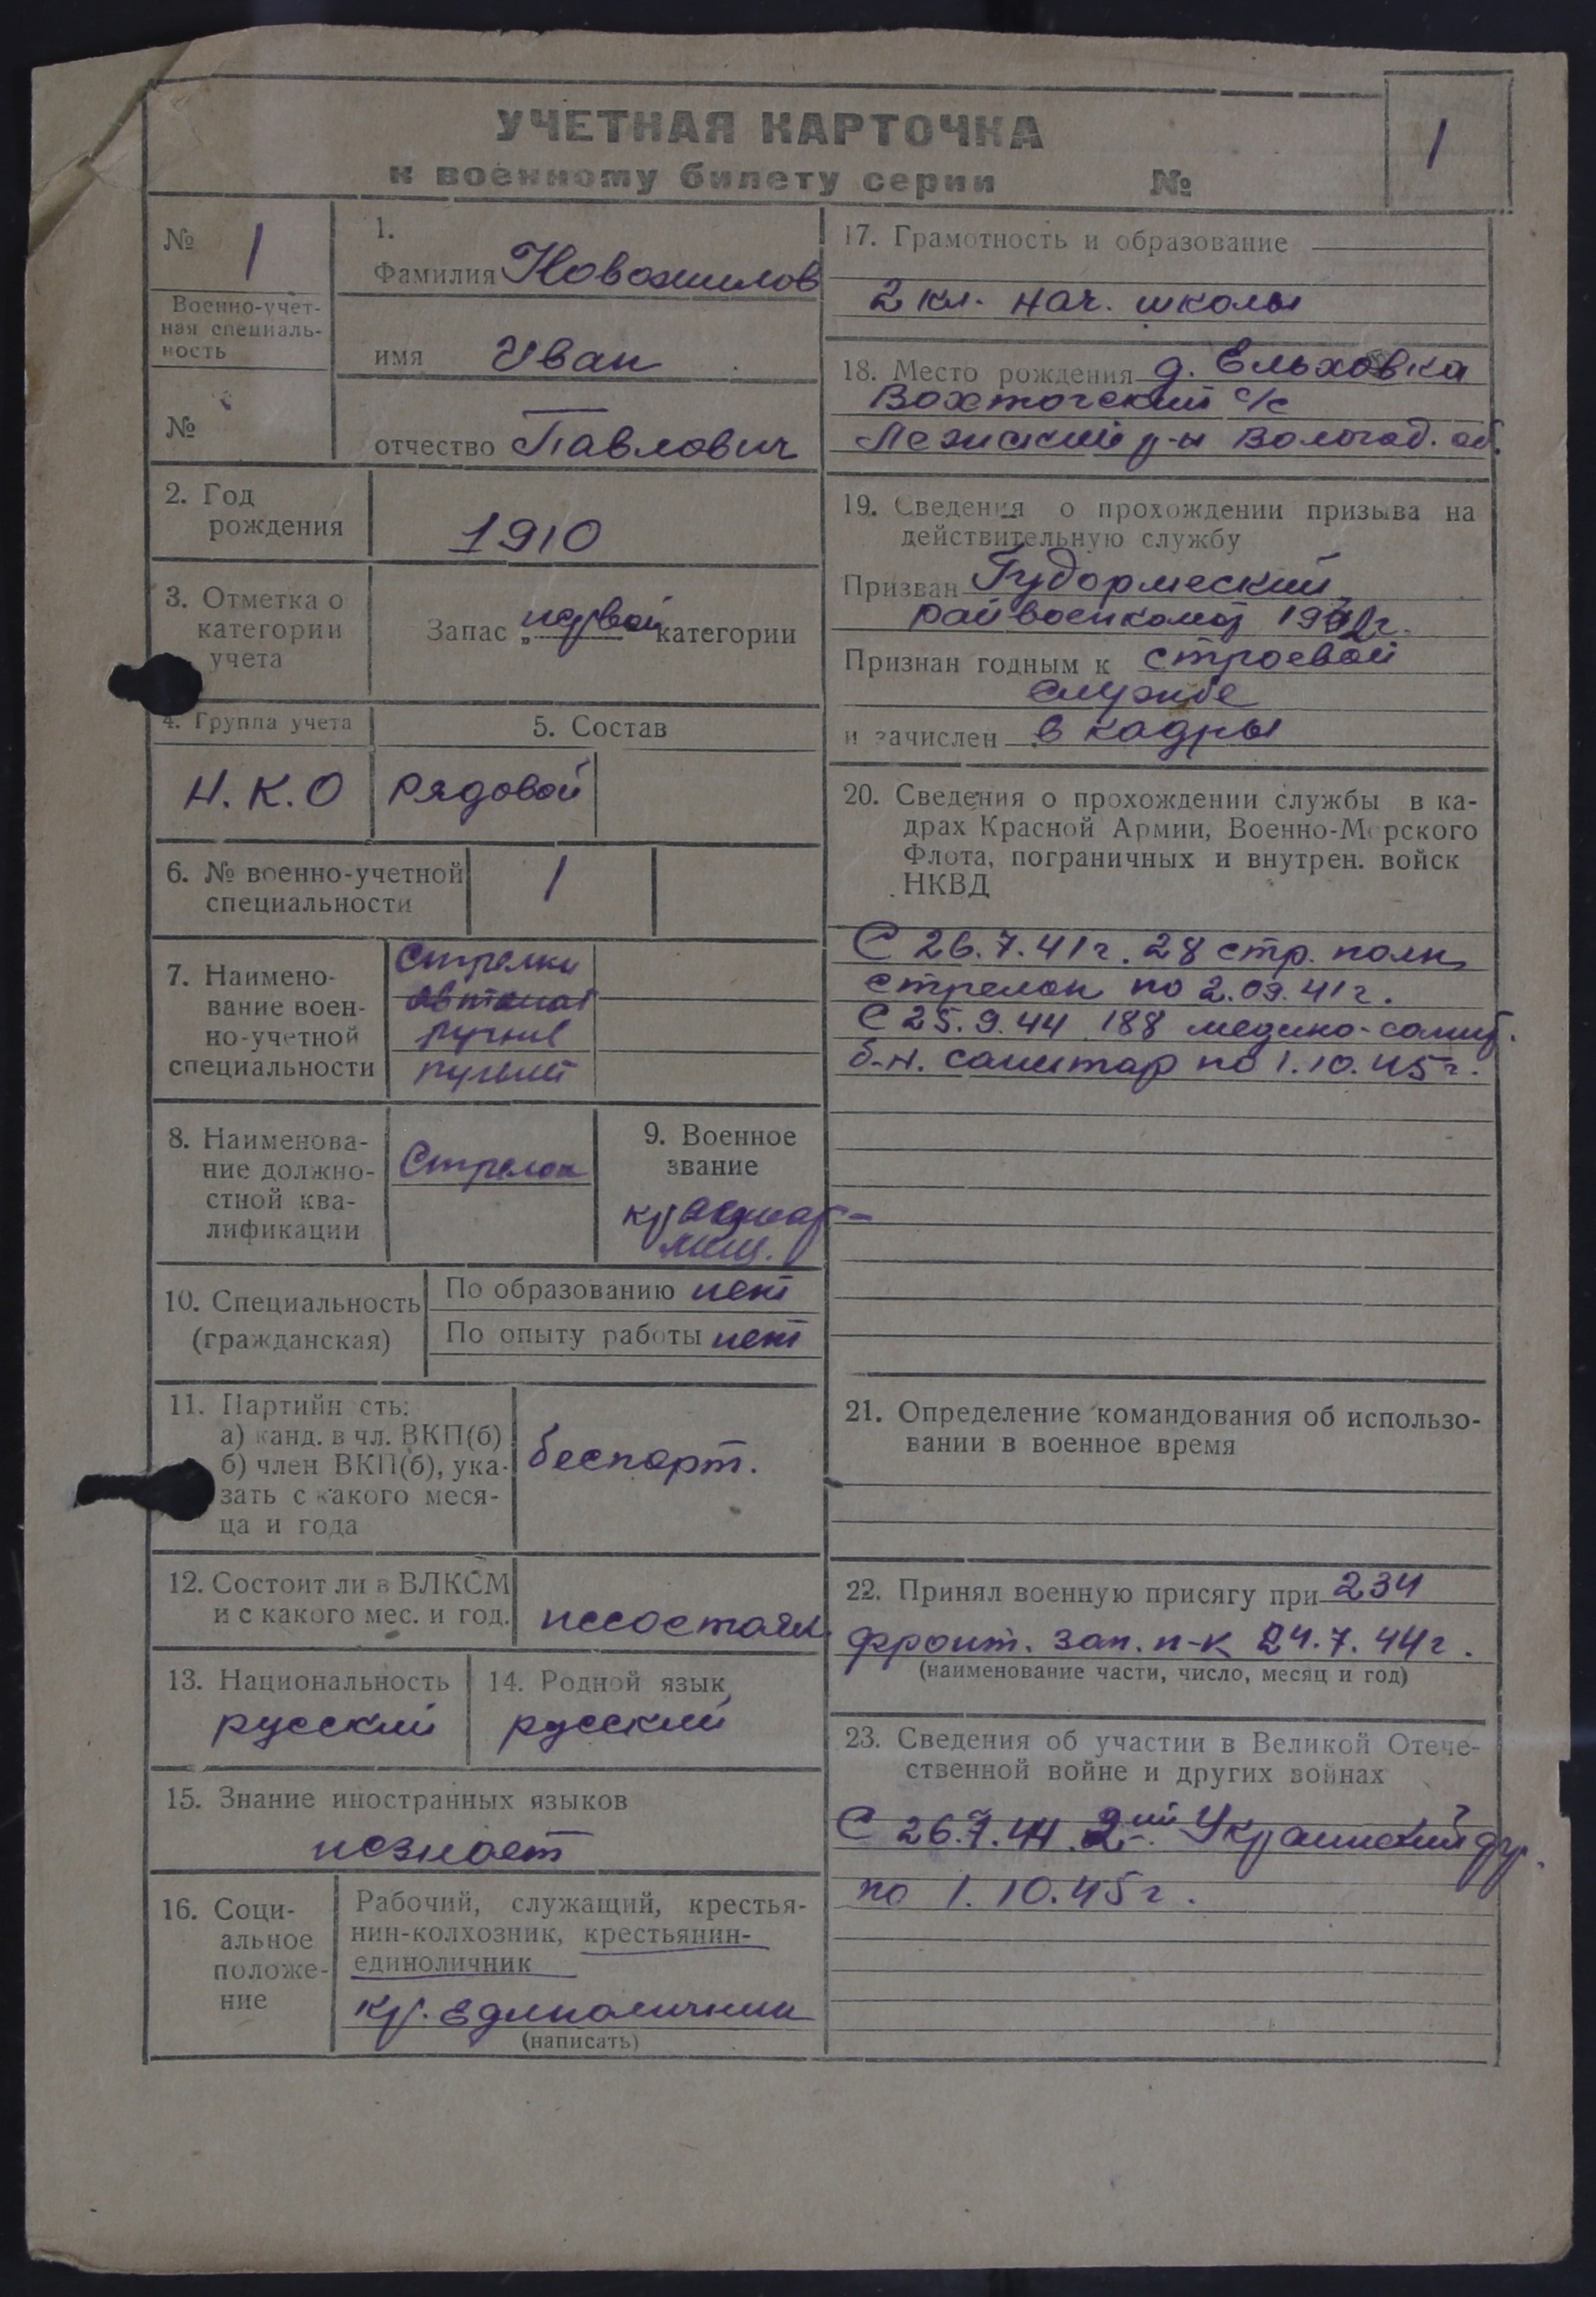 УЧЕТНАЯ КАРТОЧКА
к военному билету серии №
1
№ 1
Военно-учет-
ная специаль-
ность
№
1.
Фамилия Новожилов
имя Иван
отчество Павлович
2. Год
рождения
1910
3. Отметка о
категории
учета
Запас „первой категории
4. Группа учета
Н.К.О
5. Состав
рядовой
6. № военно-учетной
специальности
1
7. Наимено-
вание воен-
но-учетной
специальности
Стрелки
автомат
ручные
пулемет
8. Наименова-
ние должно-
стной ква-
лификации
Стрелок
9. Военное
звание
красноар-
меец.
10. Специальность
(гражданская)
По образованию нет
По опыту работы нет
11. Партийн сть:
а) канд. в чл. ВКП(б)
б) член ВКП(б), ука-
зать с какого меся-
ца и года
беспарт.
12. Состоит ли в ВЛКСМ
и с какого мес. и год.
несостоял
13. Национальность
русский
14. Родной язык
русский
15. Знание иностранных языков
незнает
16. Соци-
альное
положе-
ние
Рабочий, служащий, крестья-
нин-колхозник, крестьянин-
единоличник
кр. единоличник
(написать)
17. Грамотность и образование
2 кл. нач. школы
18. Место рождения д. Ельховка
Вохтогский с/с
Лежский р-н Вологод. об.
19. Сведения о прохождении призыва на
действительную службу
Призван
райвоенкомат
Признан годным к строевой
службе
и зачислен в кадры
20. Сведения о прохождении службы в ка-
драх Красной Армии, Военно-Морского
Флота, пограничных и внутрен. войск
НКВД
С 26.7.41г. 28 стр. полк
стрелок по 2.09.41г.
С 25.9.44 188 медико-санит.
б-н. санитар по 1.10.45г.
21. Определение командования об использо-
вании в военное время
22. Принял военную присягу при 234
фронт. зап. п-к 24.7.44г.
(наименование части, число, месяц и год)
23. Сведения об участии в Великой Отече-
ственной войне и других войнах
С 26.7.44. 2ий Украинский фр.
по 1.10.45г.